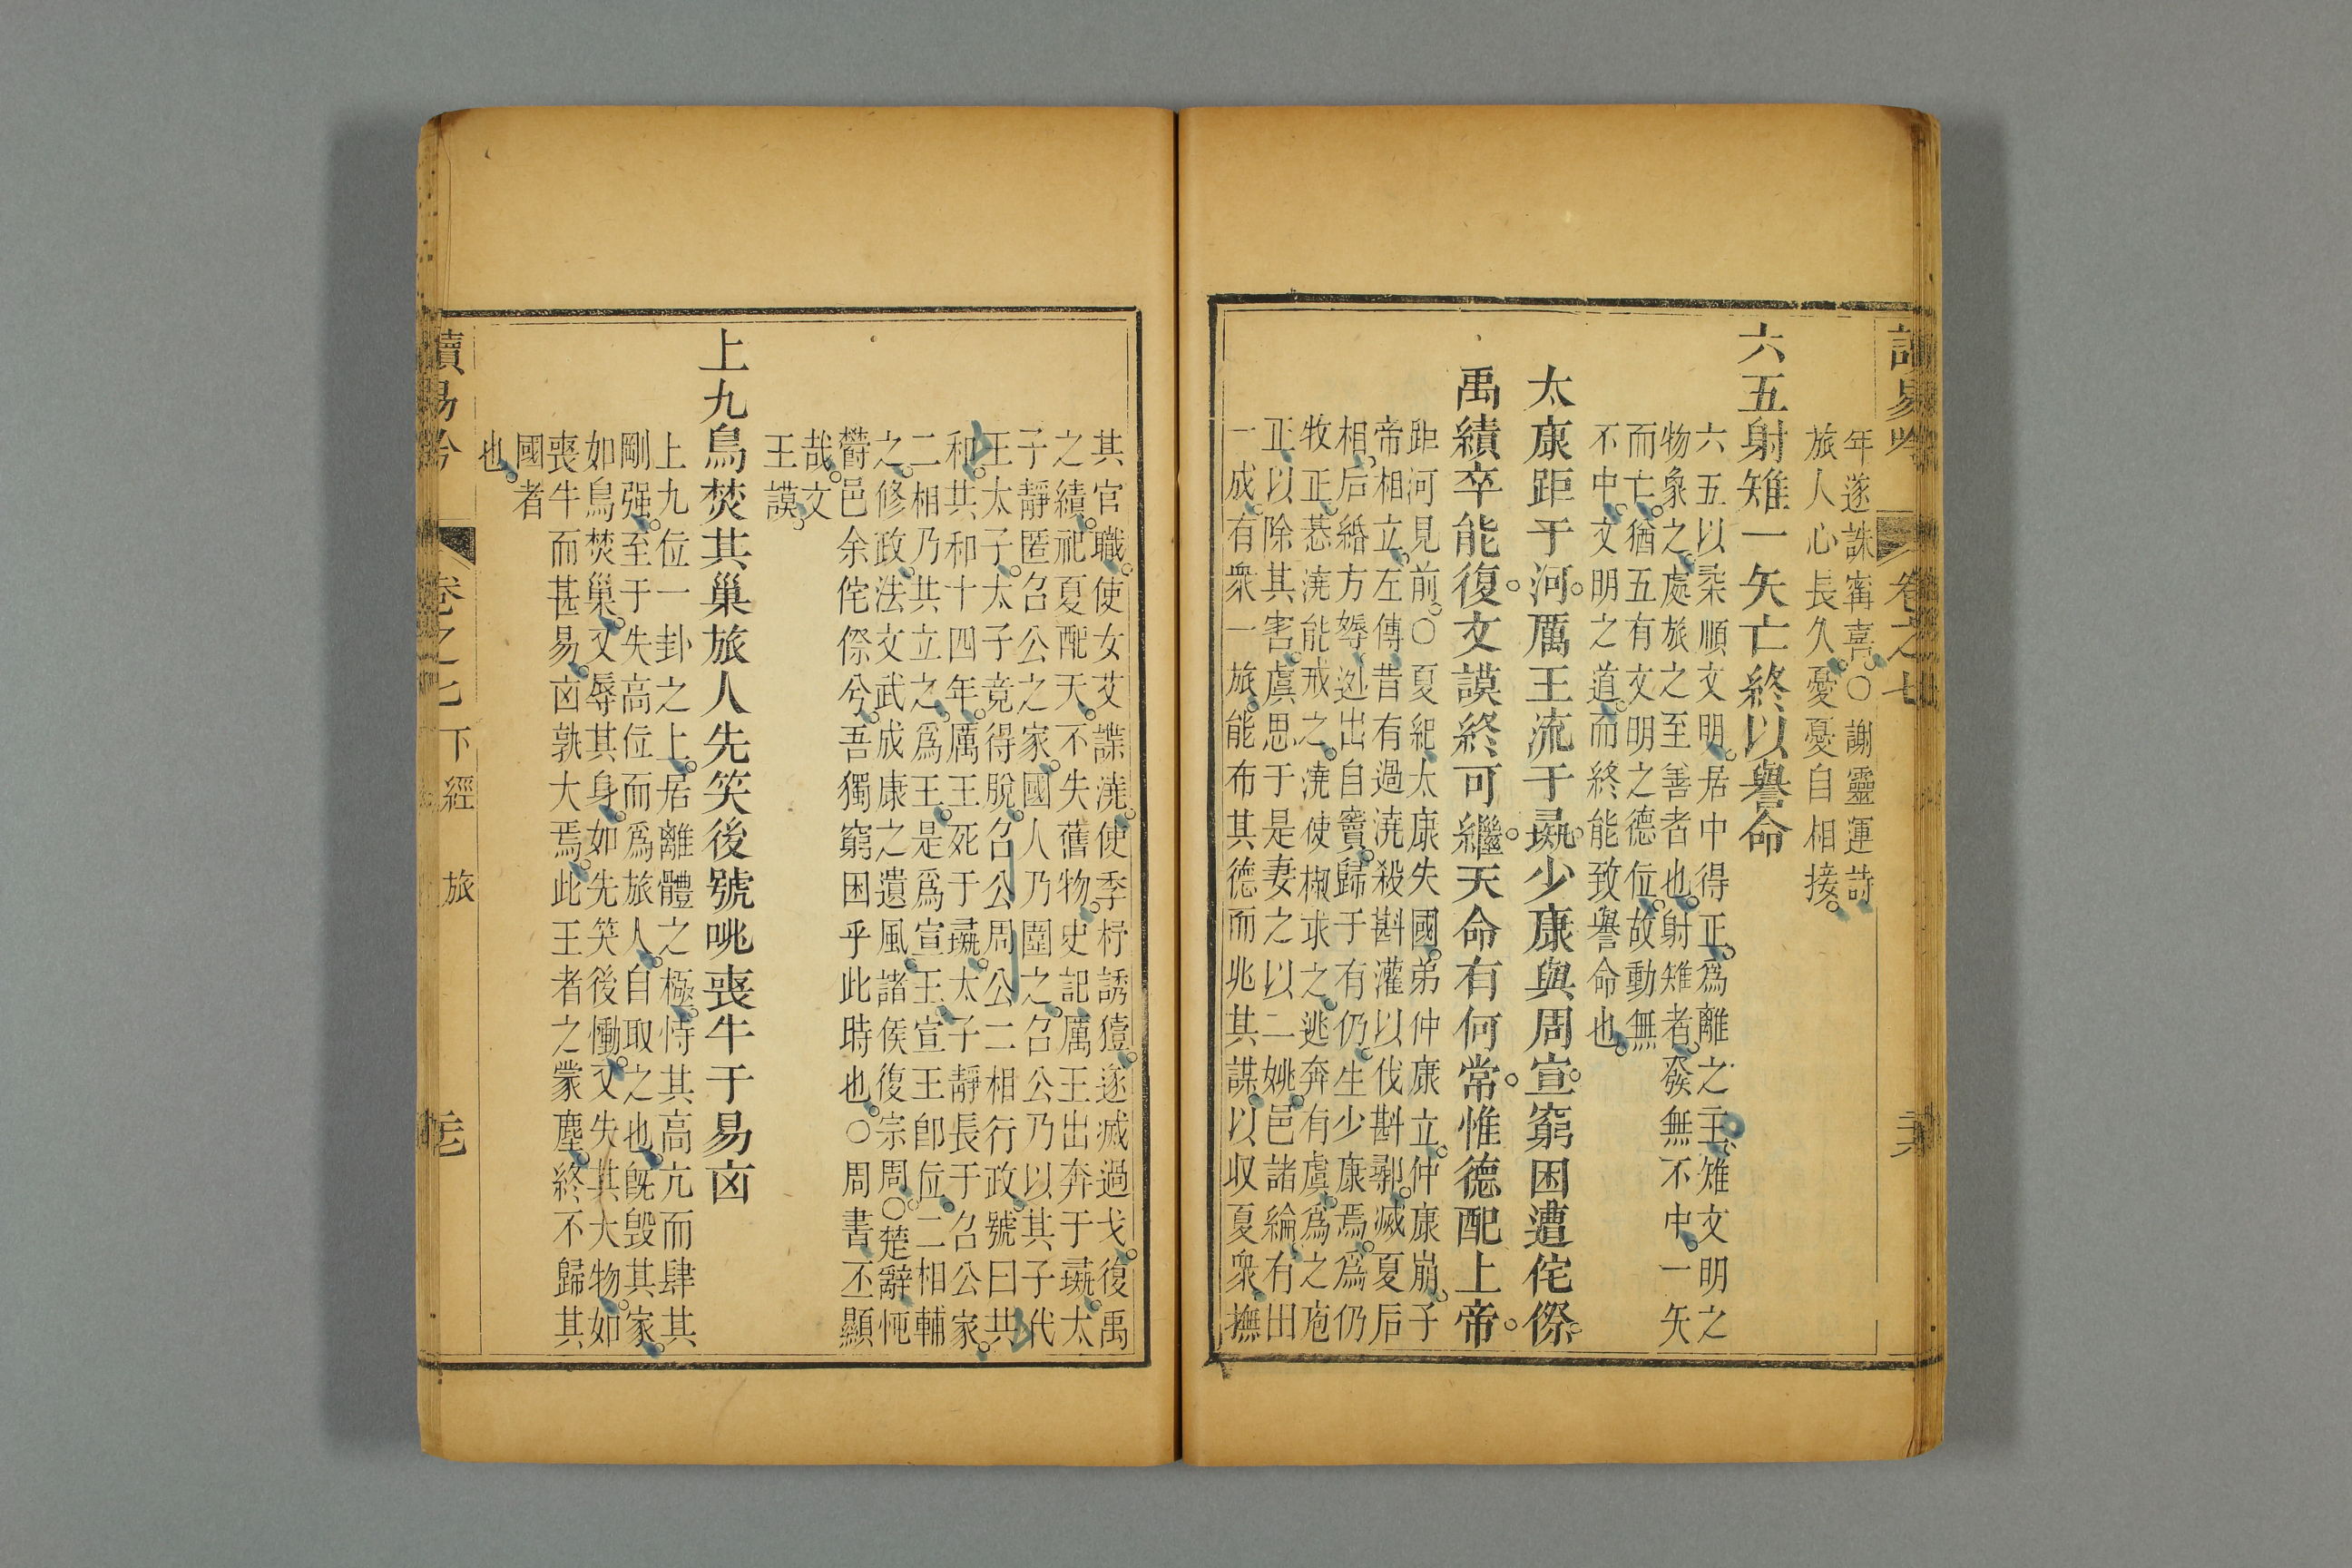 讀易吟
卷之七
年遂誅甯喜○謝靈運詩
旅人心長久憂憂自相接
六五射雉一矢亡終以譽命
六五以柔順文明居中得正爲離之主雉文明之
物象之處旅之至善者也射雉者發無不中一矢
而亡猶五有文明之德位故動無
不中文明之道而終能致譽命也
太康距于河厲王流于彘少康與周宣窮困遭侘傺
禹績卒能復文謨終可繼天命有何常惟德配上帝
距河見前○夏紀太康失國弟仲康立仲康崩子
帝相立左傳昔有過澆殺斟灌以伐斟鄩滅夏后
相后緡方娠逃出自竇歸于有仍生少康焉爲仍
牧正惎澆能戒之澆使椒求之逃奔有虞爲之庖
正以除其害虞思于是妻之以二姚邑諸綸有田
一成有衆一旅能布其德而兆其謀以収夏衆撫
其官職使女艾諜澆使季杼誘豷遂滅過戈復禹
之績祀夏配天不失舊物史記厲王出奔于彘太
子靜匿召公之家國人乃圍之召公乃以其子代
王太子太子竟得脫召公周公二相行政號曰共
和共和十四年厲王死于彘太子靜長于召公家
二相乃共立之爲王是爲宣王宣王卽位二相輔
之修政法文武成康之遺風諸侯復宗周○楚辭忳
鬱邑余侘傺兮吾獨窮困乎此時也○周書丕顯
哉文
王謨
上九鳥焚其巢旅人先笑後號咷喪牛于易凶
上九位一卦之上居離體之極恃其高亢而肆其
剛强至于失高位而爲旅人自取之也旣毁其家
如鳥焚巢又辱其身如先笑後慟又失其大物如
喪牛而甚易凶孰大焉此王者之蒙塵終不歸其
國者
也
讀易吟
卷之七
下經
旅